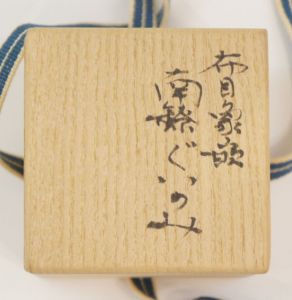 布目象嵌
南鐐ぐいのみ